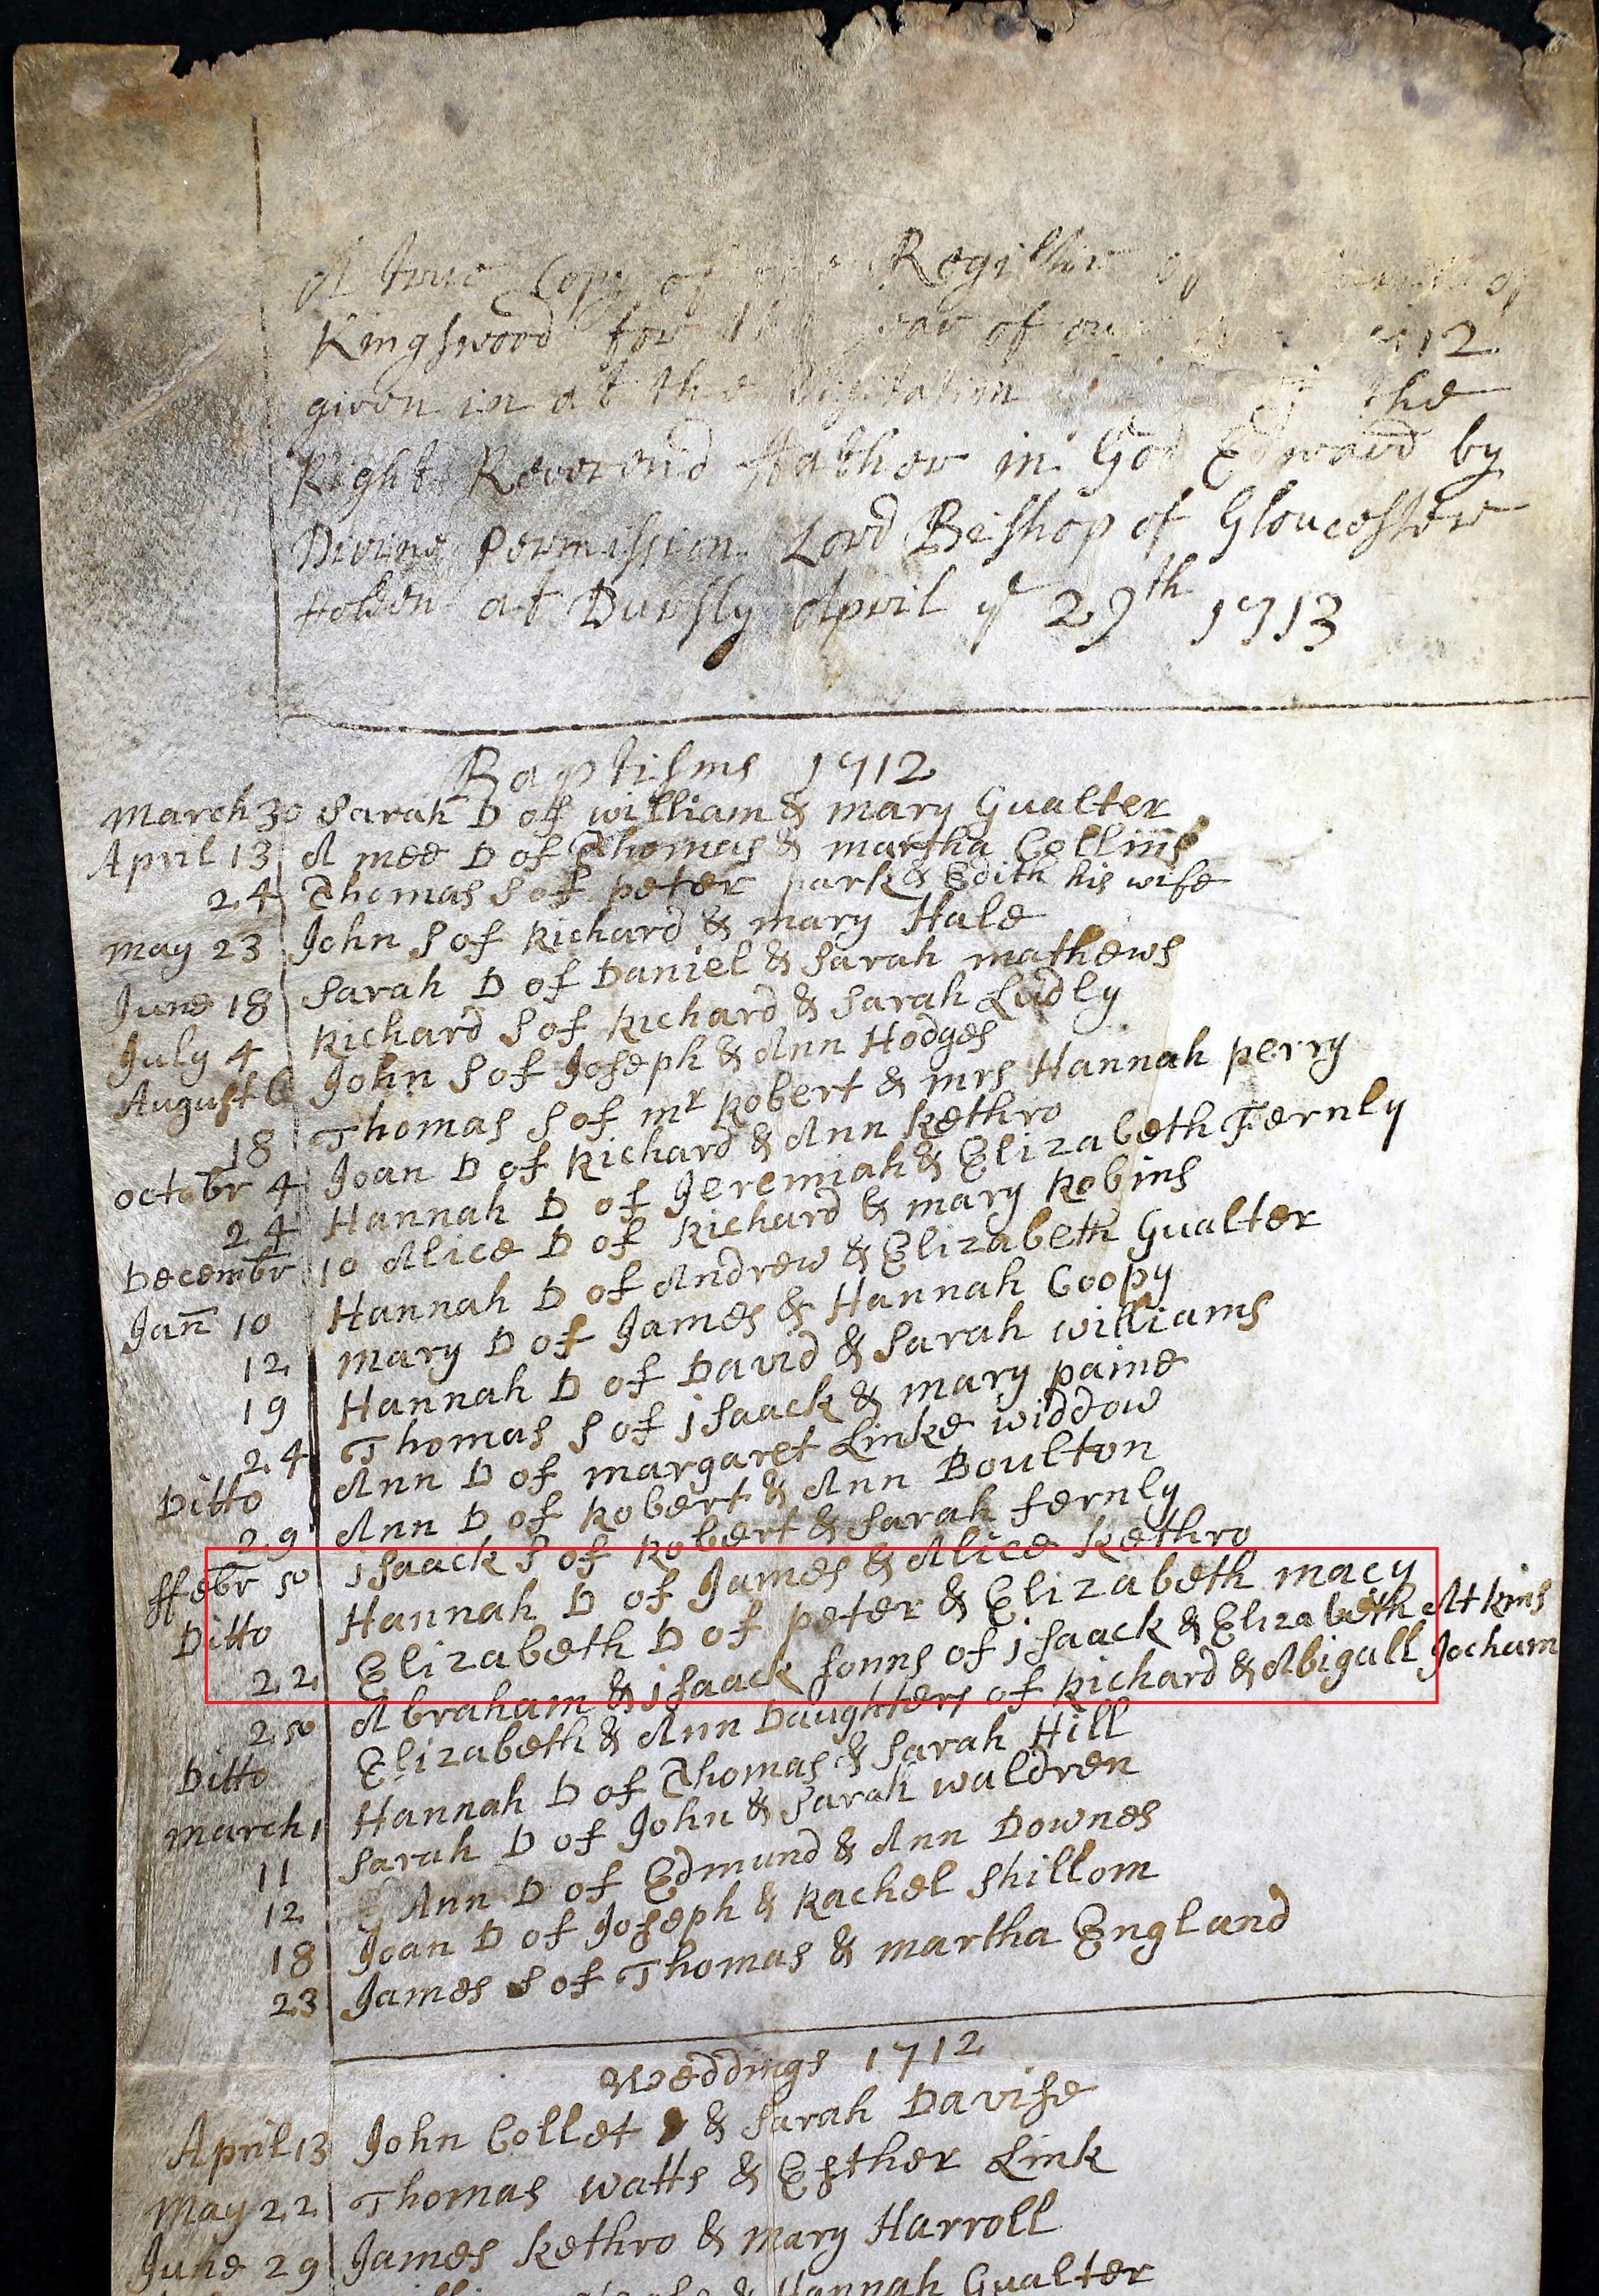 A true Copy of Register of of
Kingswood for the year of our 1712
given in at the Visitation of the
Right Reverend ffather in God Edward by
Divine Permission Lord Bishop of Gloucester
Holden at Dursly April ye 29th 1713
Baptisms 1712
March 30 Sarah D of william & mary Gualter
April 13 Amee D of Thomas & martha Collins
24 Thomas S of peter park & Edith his wife
may 23 John S of Richard & mary Hale
June 18 Sarah D of Daniel & Sarah mathews
July 4 Richard S of Richard & Sarah Ludly
August 6 John S of Joseph & Ann Hodges
18 Thomas S of mr Robert & mrs Hannah perry
octobr 4 Joan D of Richard & Ann Kethro
24 Hannah D of Jeremiah & Elizabeth Fernly
Decembr 10 Alice D of Richard & mary Robins
Jan 10 Hannah D of Andrew & Elizabeth Gualter
12 mary D of James & Hannah Coopy
19 Hannah D of David & Sarah williams
24 Thomas S of jsaack & mary paine
Ditto Ann D of margaret Linke widdow
29 Ann D of Robert & Ann Boulton
ffebr 10 jsaack S of Robert & Sarah fernly
Ditto Hannah D of James & Alice Kethro
22 Elizabeth D of peter & Elizabeth macy
20 Abraham & jsaack sonns of jsaack & Elizabeth Atkins
Ditto Elizabeth & Ann Daughters of Richard & Abigall Jocham
march 1 Hannah D of Thomas & Sarah Hill
11 Sarah D of John & Sarah waldren
12 Ann D of Edmund & Ann Downes
18 Joan D of Joseph & Rachel Shillom
23 James S of Thomas & martha England
Weddings 1712
April 13 John Collet & Sarah Davise
May 22 Thomas watts & Esther Link
June 29 James Kethro & Mary Harroll
& Hannah Gualter